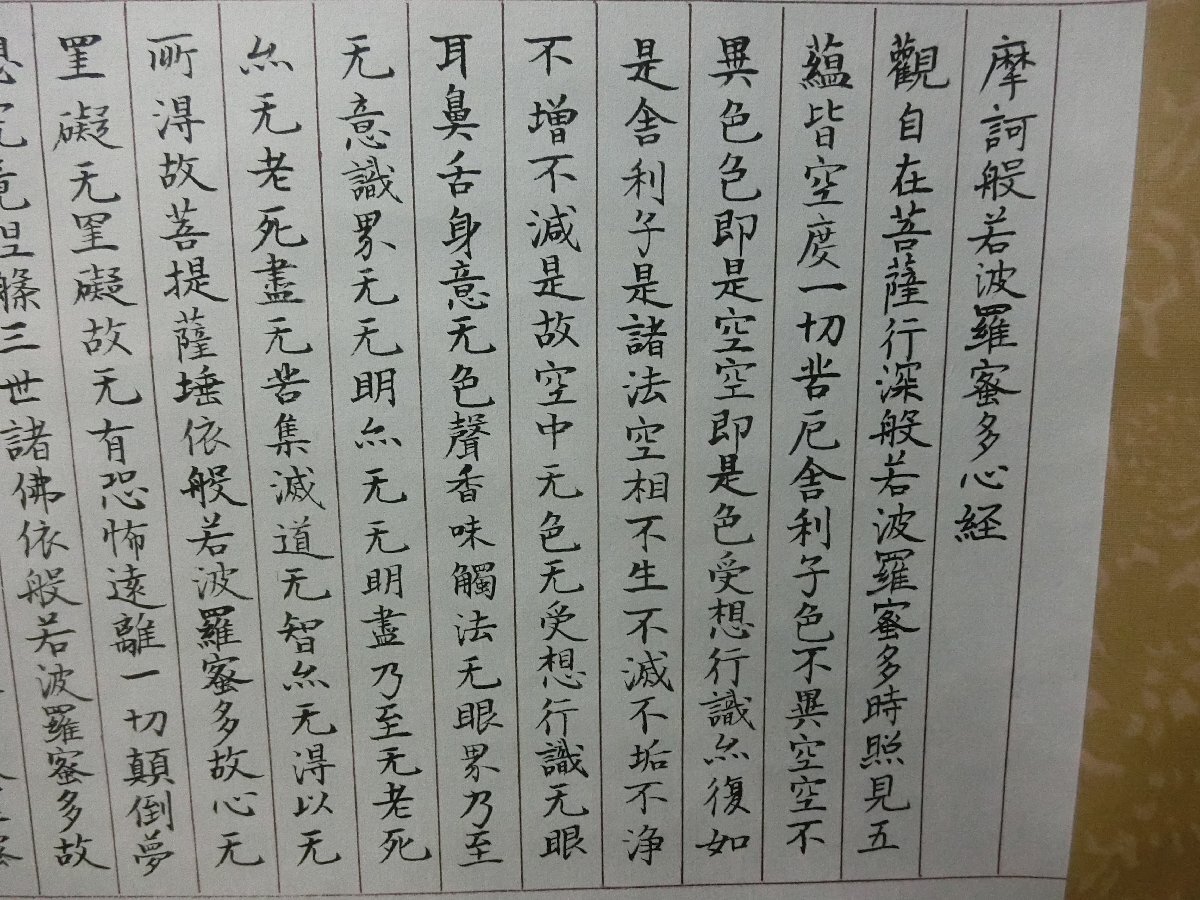 摩訶般若波羅蜜多心経
觀自在菩薩行深般若波羅蜜多時照見五
蘊皆空度一切苦厄舎利子色不異空空不
異色色即是空空即是色受想行識亦復如
是舎利子是諸法空相不生不滅不垢不浄
不增不減是故空中无色无受想行識无眼
耳鼻舌身意无色聲香味觸法无眼界乃至
无意識界无无明亦无无明盡乃至无老死
亦无老死盡无苦集滅道无智亦无得以无
所得故菩提薩埵依般若波羅蜜多故心无
罣礙无罣礙故无有恐怖遠離一切顛倒夢
想究竟涅槃三世諸佛依般若波羅蜜多故